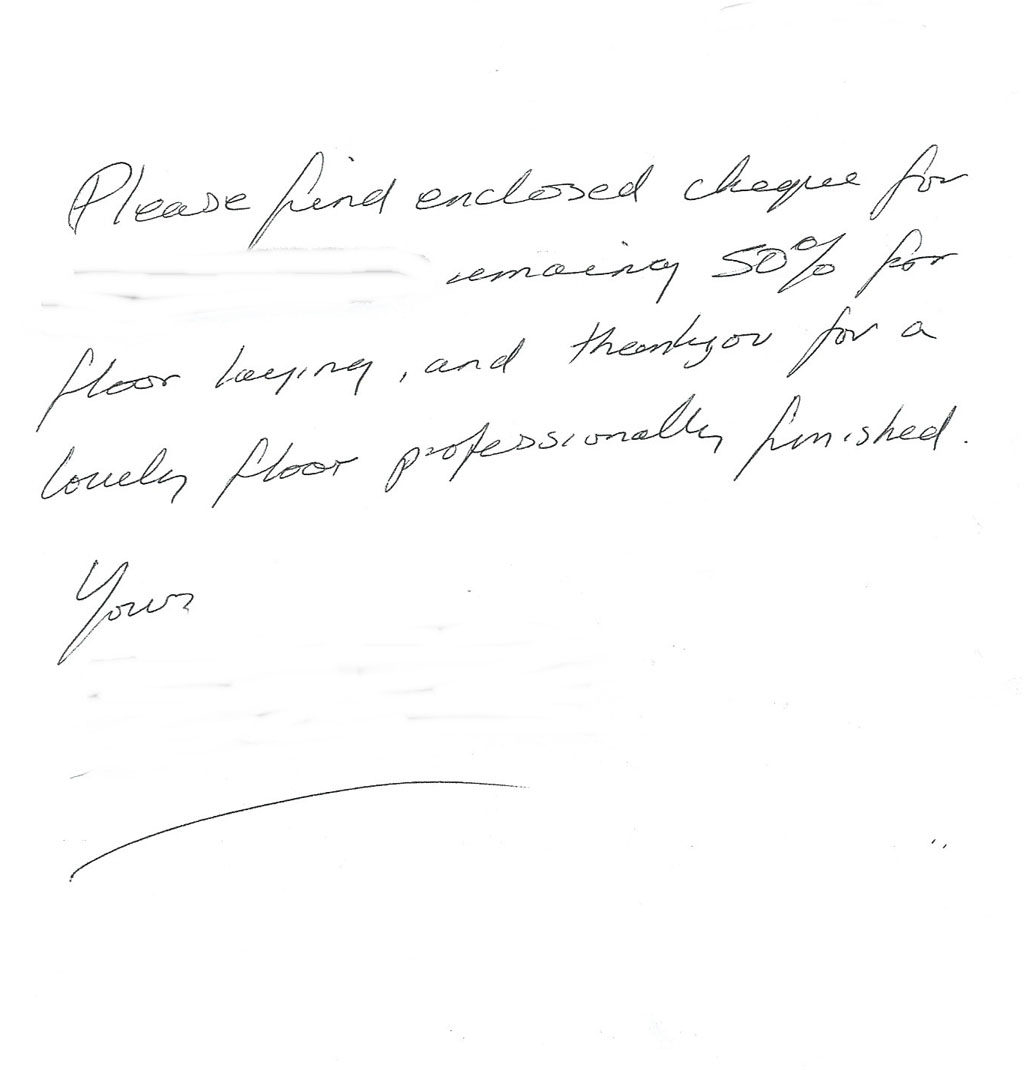 Please find enclosed cheque for
remaining 50% for
floor laying, and thankyou for a
lovely floor professionally finished.
Yours